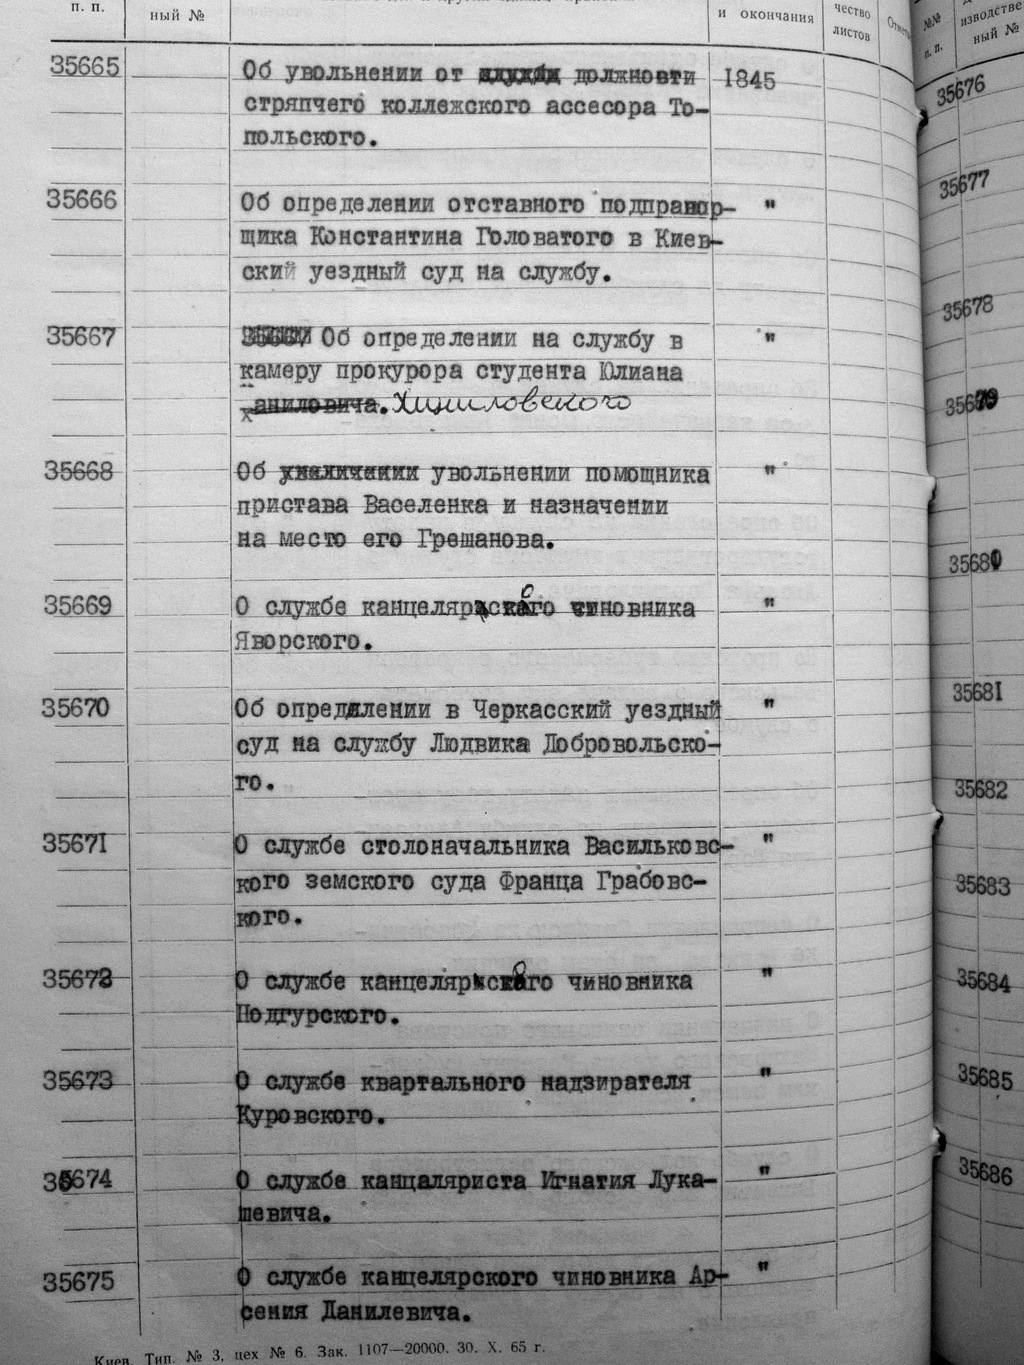 п. п.
ный №
и окончания
чество
листов
№№
п. п.
изводстве
ный №
35665 Об увольнении от службы должности 1845
стряпчего коллежского ассесора То-
польского.
35666 Об определении отставного подпрапор- "
щика Константина Головатого в Киев-
ский уездный суд на службу.
35667 Об определении на службу в "
камеру прокурора студента Юлиана
аниловича. Хициловского
35668 Об увеличении увольнении помощника "
пристава Васеленка и назначении
на место его Грешанова.
35669 О службе канцелярского чиновника "
Яворского.
35670 Об определении в Черкасский уездный "
суд на службу Людвика Добровольско-
го.
35671 О службе столоначальника Васильковс- "
кого земского суда Франца Грабовс-
кого.
35672 О службе канцелярского чиновника "
Подгурского.
35673 О службе квартального надзирателя "
Куровского.
35674 О службе канцаляриста Игнатия Лука- "
шевича.
35675 О службе канцелярского чиновника Ар- "
сения Данилевича.
Киев. Тип. № 3, цех № 6. Зак. 1107—20000. 30. X. 65 г.
35676
35677
35678
35679
35680
35681
35682
35683
35684
35685
35686